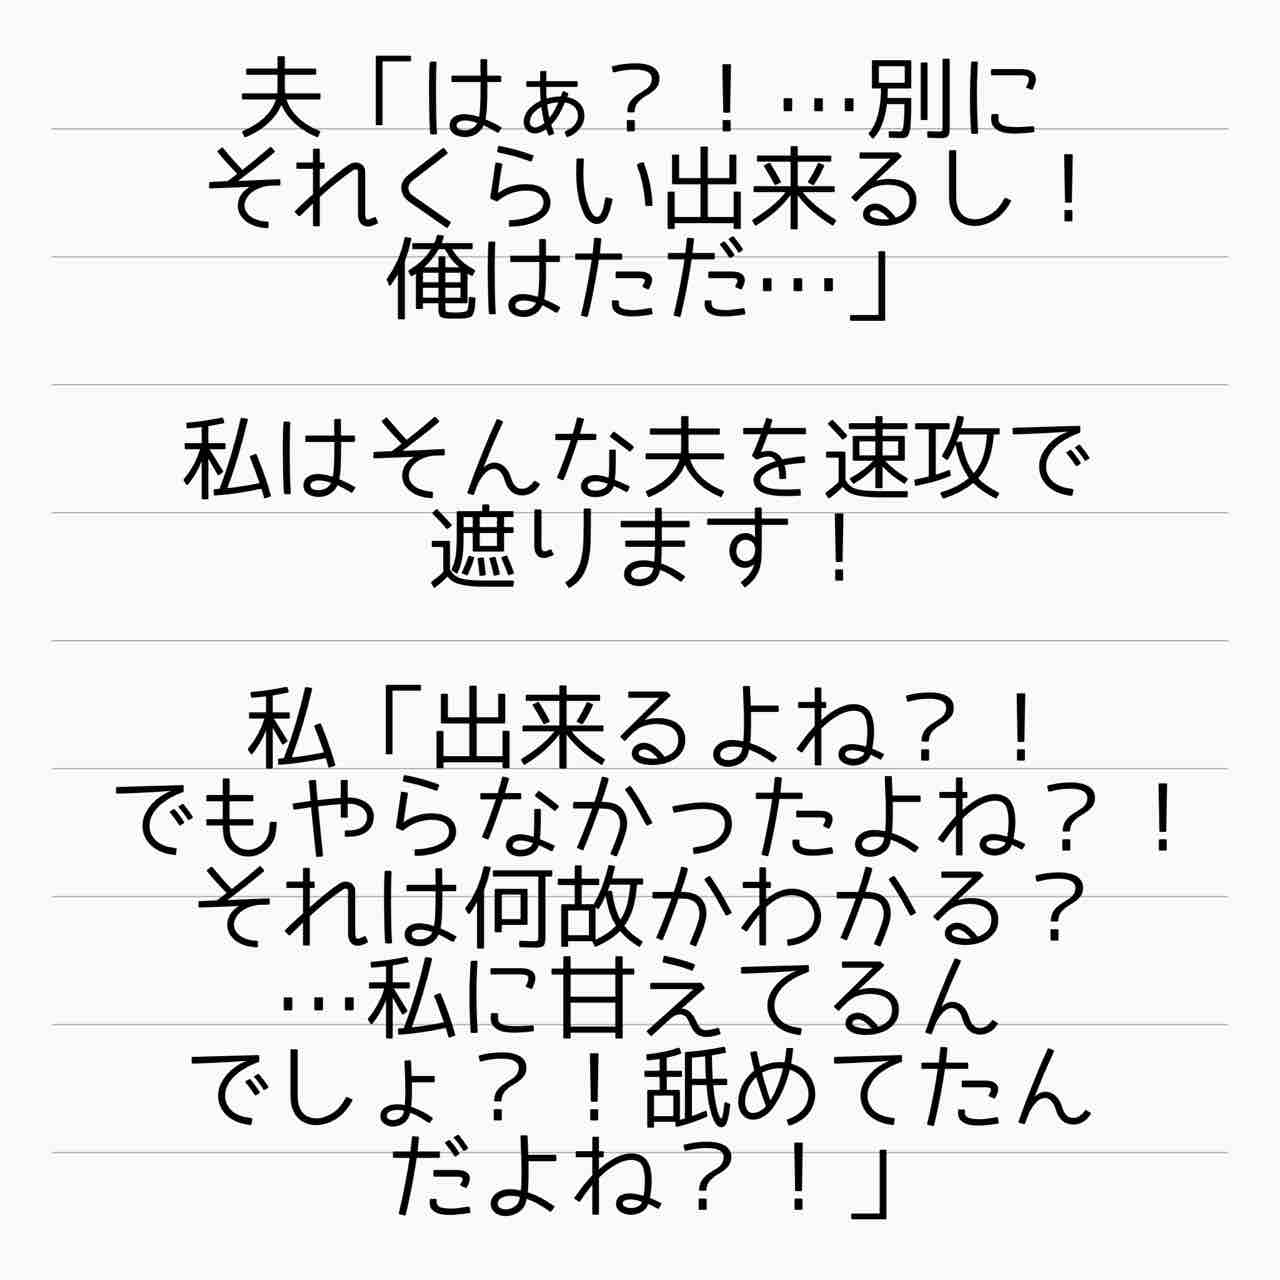 夫「はぁ？！…別に
それくらい出来るし！
俺はただ…」
私はそんな夫を速攻で
遮ります！
私「出来るよね？！
でもやらなかったよね？！
それは何故かわかる？
…私に甘えてるん
でしょ？！舐めてたん
だよね？！」